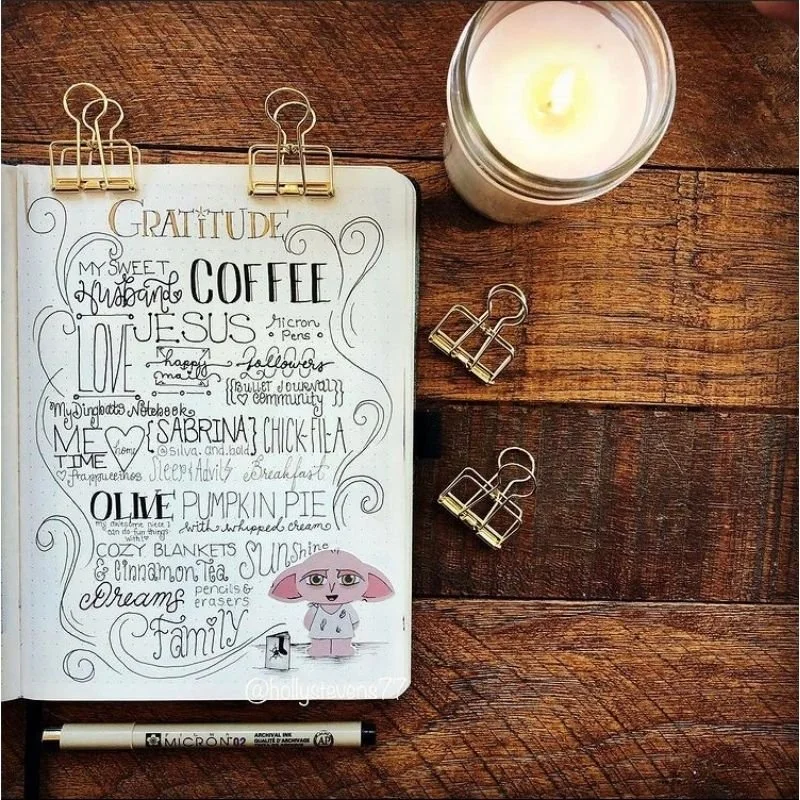 GRATITUDE
MY SWEET Husband COFFEE
LOVE JESUS Micron Pens
happy mail followers
{{BULLET JOURNAL}} community
My Dingbats Notebook
ME TIME home {SABRINA} CHICK-FIL-A
@silva.and.bold
frappuccinos Sleep & Advil Breakfast
OLIVE PUMPKIN PIE
my awesome niece I can do fun things with with whipped cream
COZY BLANKETS Sunshine
& Cinnamon Tea
Dreams pencils & erasers
Family
@hollystevens77
MICRON 02 ARCHIVAL INK
QUALITÉ D'ARCHIVAGE AP